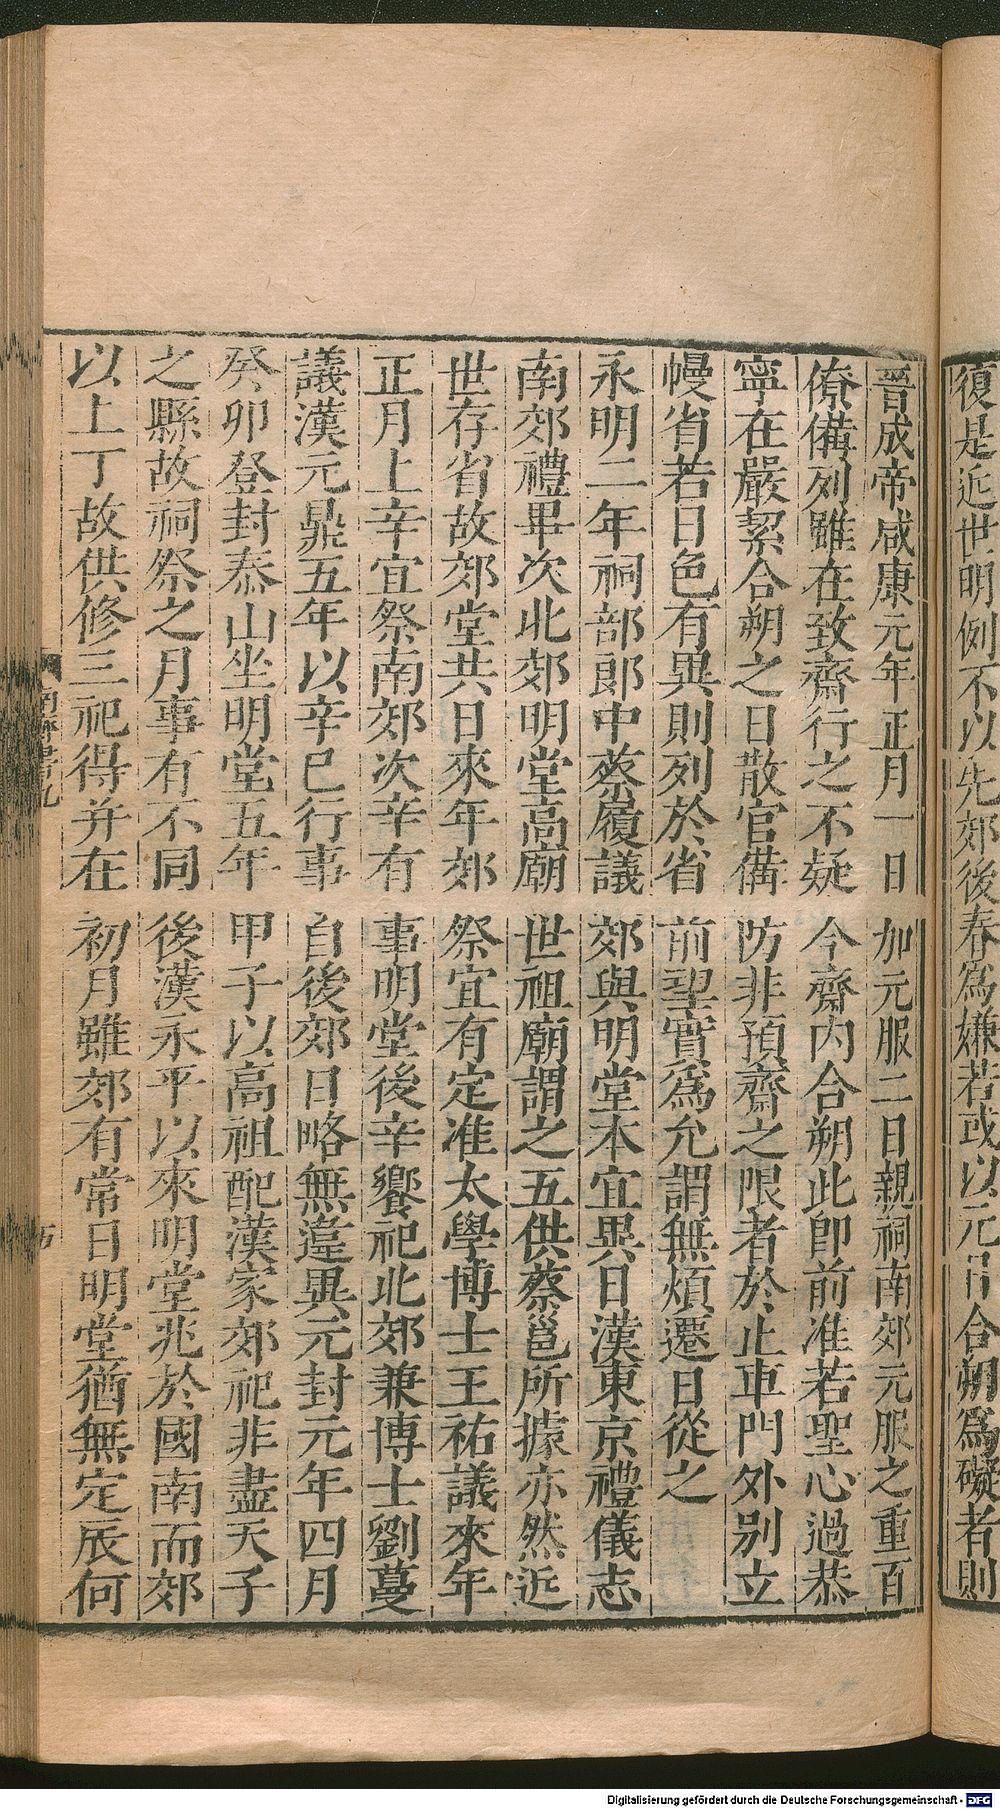 復是近世明例不以先郊後春爲嫌若或以元日合朔爲礙者則
晉成帝咸康元年正月一日加元服二日親祠南郊元服之重百
僚備列雖在致齋行之不疑今齋内合朔此即前准若聖心過恭
寧在嚴絜合朔之日散官備防非預齋之限者於止車門外别立
幔省若日色有異則列於省前望實爲允謂無煩遷日從之
永明二年祠部郎中蔡履議郊與明堂本宜異日漢東京禮儀志
南郊禮畢次北郊明堂高廟世祖廟謂之五供蔡邕所據亦然近
世存省故郊堂共日來年郊祭宜有定准太學博士王祐議來年
正月上辛宜祭南郊次辛有事明堂後辛饗祀北郊兼博士劉蔓
議漢元鼎五年以辛巳行事自後郊日略無違異元封元年四月
癸卯登封泰山坐明堂五年甲子以高祖配漢家郊祀非盡天子
之縣故祠祭之月事有不同後漢永平以來明堂兆於國南而郊
以上丁故供修三祀得并在初月雖郊有常日明堂猶無定辰何
南齊書志九
Digitalisierung gefördert durch die Deutsche Forschungsgemeinschaft - DFG